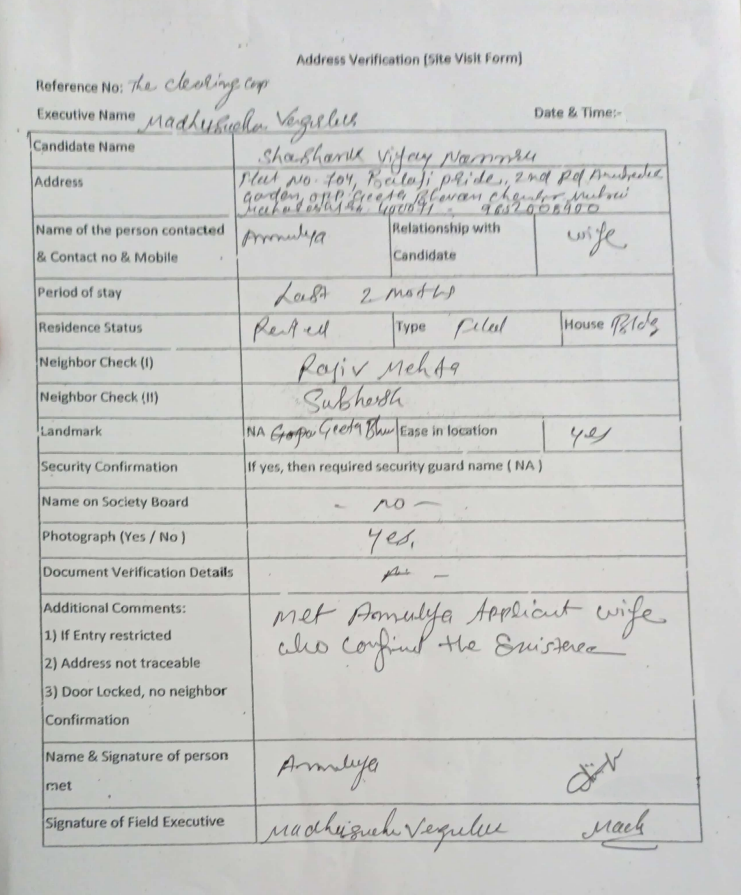 Address Verification (Site Visit Form)
Reference No: The clearing corp
Executive Name Madhusudan Date & Time:-
Candidate Name Shashank Vijay
Address Flat No. 704, Balaji pride, 2nd Rd
Garden, opp. Geeta Bhavan Chembur Mumbai
400071 -
Name of the person contacted & Contact no & Mobile Amulya Relationship with Candidate wife
Period of stay Last 2 moths
Residence Status Rented Type Flat House Bldg
Neighbor Check (I) Rajiv Mehta
Neighbor Check (II) Subhash
Landmark NA Geeta Bhw Ease in location yes
Security Confirmation If yes, then required security guard name ( NA )
Name on Society Board - no -
Photograph (Yes / No ) Yes.
Document Verification Details -
Additional Comments: met Amulya Applicant wife
1) If Entry restricted also confirmd the
2) Address not traceable
3) Door Locked, no neighbor
Confirmation
Name & Signature of person met Amulya
Signature of Field Executive